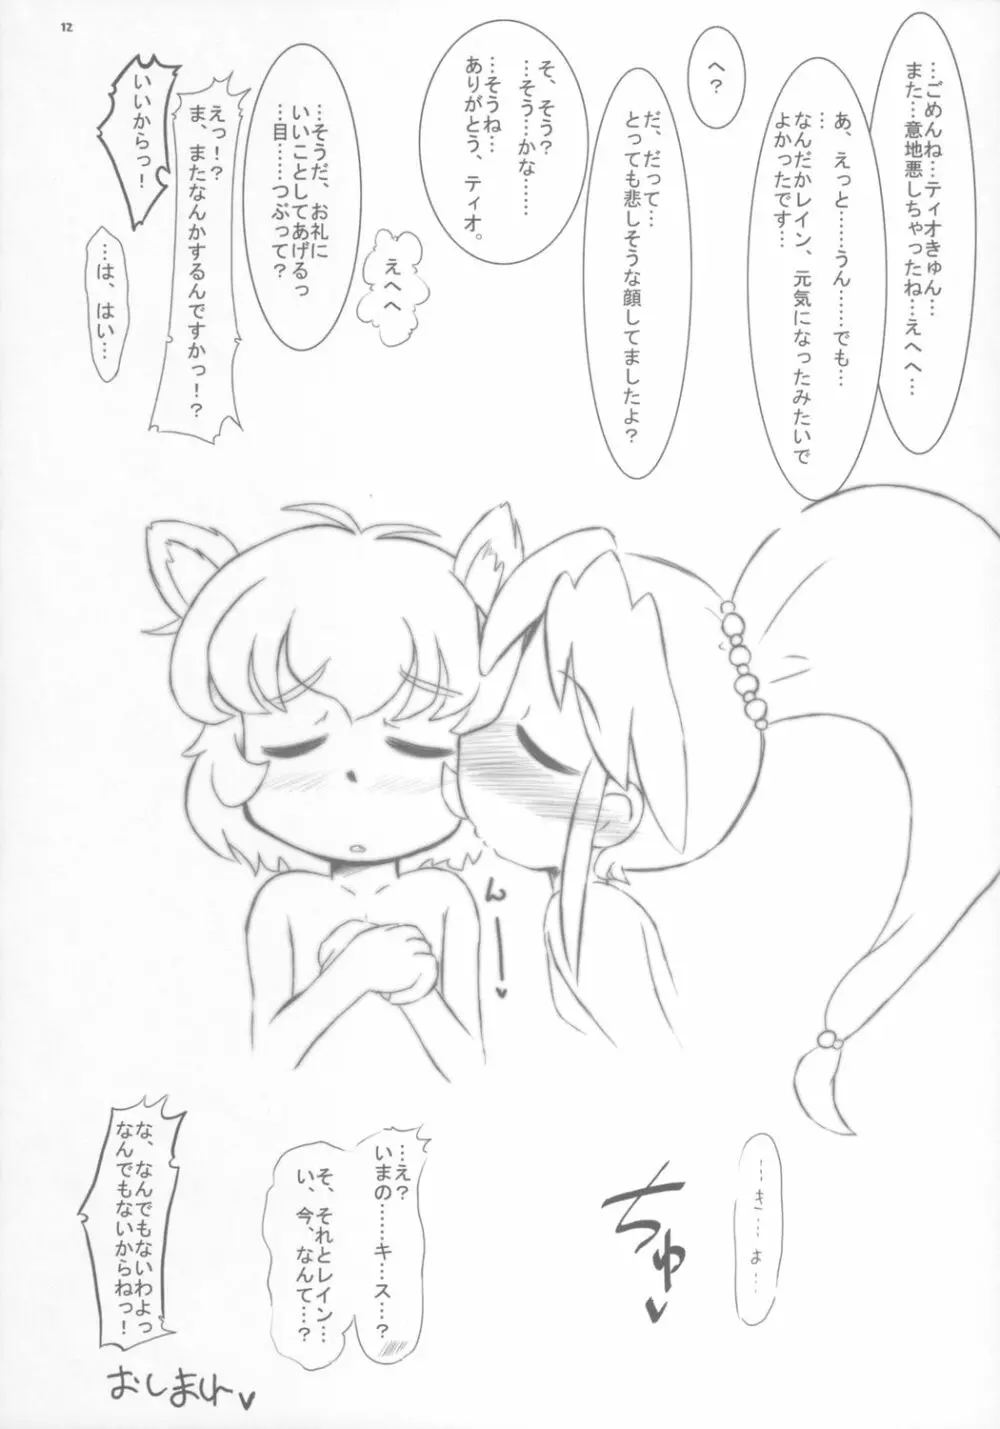 12
…ごめんね…ティオきゅん…
また…意地悪しちゃったね…えへへ…
あ、えっと……うん……でも…
…
なんだかレイン、元気になったみたいで
よかったです…
へ?
だ、だって…
とっても悲しそうな顔してましたよ?
そ、そう?
…そう…かな……
…そうね…
ありがとう、ティオ。
えへへ
…そうだ、お礼に
いいことしてあげるっ
…目……つぶって?
えっ!?
ま、またなんかするんですかっ!?
いいからっ!
…は、はい…
んー
…き…よ…
ちゅ
…え?
いまの……キ…ス…?
そ、それとレイン…
い、今、なんて…?
な、なんでもないわよっ
なんでもないからねっ!
おしまい